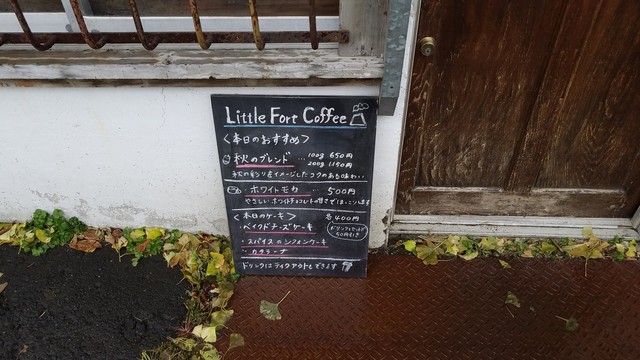 Little Fort Coffee
〈本日のおすすめ〉
秋のブレンド … 100g 650円
200g 1150円
秋の彩りをイメージしたコクのある味わい
ホワイトモカ … 500円
やさしいホワイトチョコレートの甘さでほっこりします
〈本日のケーキ〉 各400円
・ベイクドチーズケーキ
ドリンクとセットで
50円引き
・スパイスのシフォンケーキ
・カタラーナ
ドリンクはテイクアウトできます